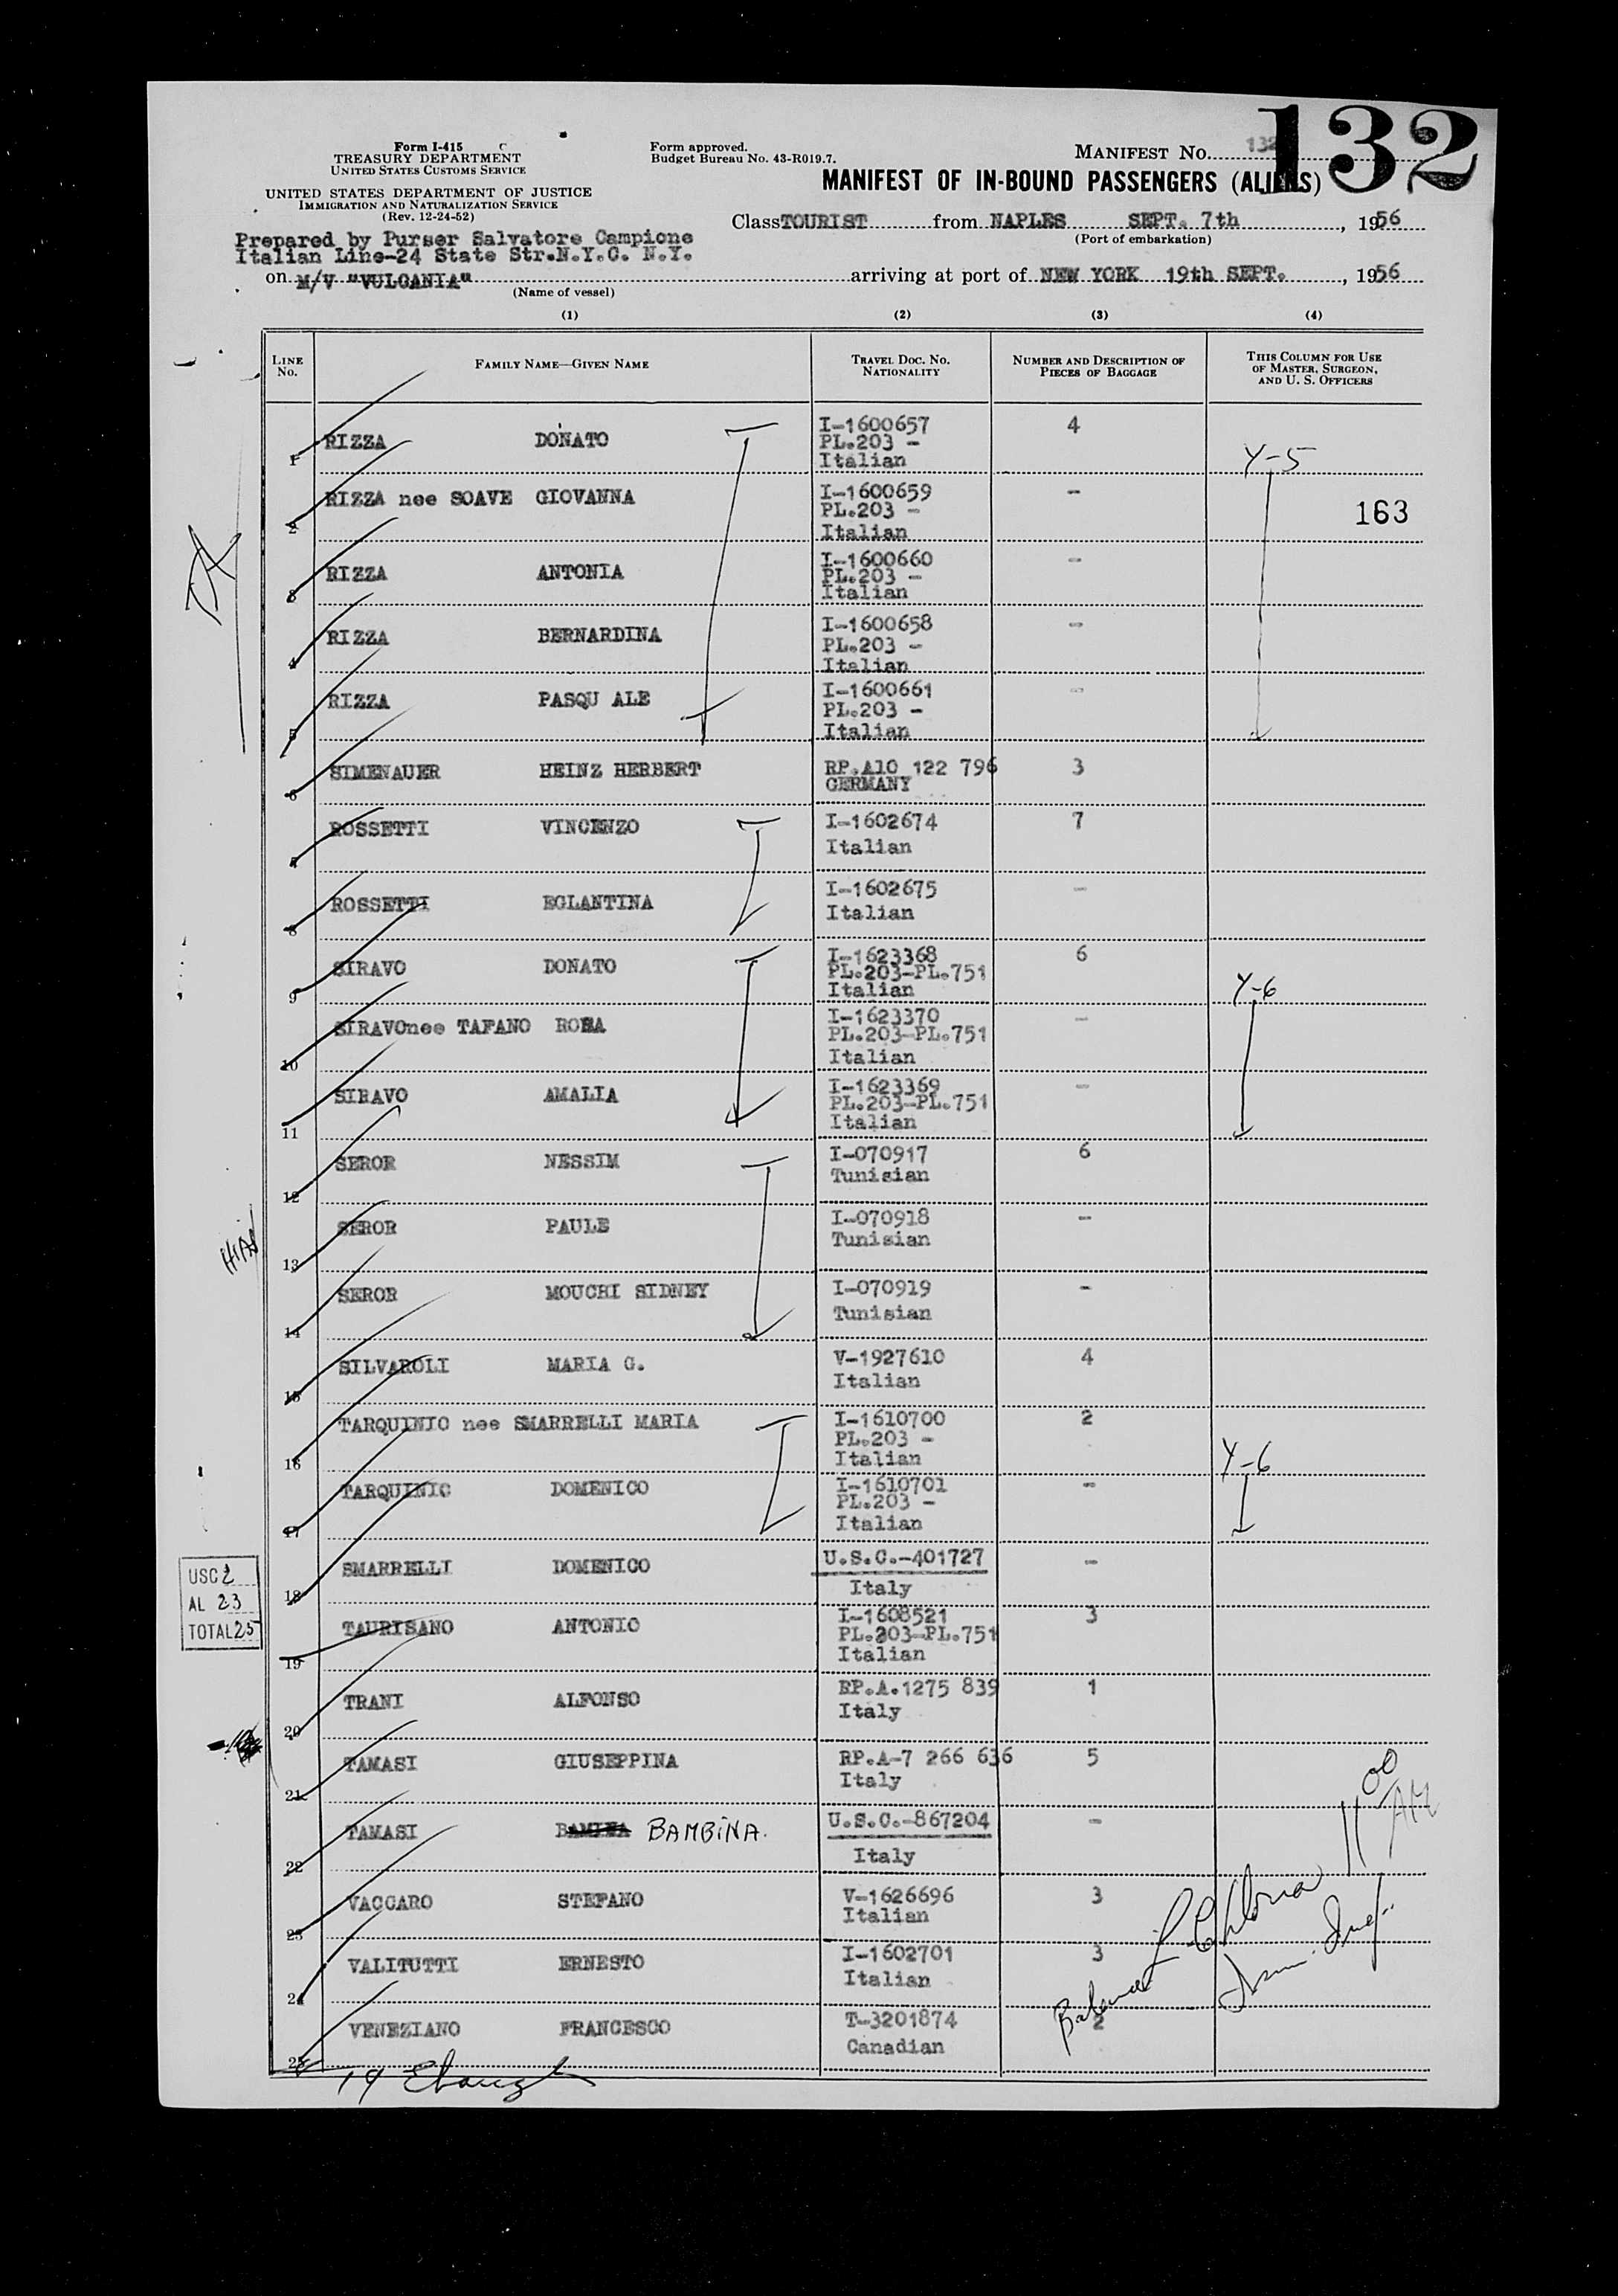 132
Form I-415 C
TREASURY DEPARTMENT
UNITED STATES CUSTOMS SERVICE
UNITED STATES DEPARTMENT OF JUSTICE
IMMIGRATION AND NATURALIZATION SERVICE
(Rev. 12-24-52)
Form approved.
Budget Bureau No. 43-R019.7.
MANIFEST NO. 132
MANIFEST OF IN-BOUND PASSENGERS (ALIENS)
Class TOURIST from NAPLES SEPT. 7th, 1956
(Port of embarkation)
Prepared by Purser Salvatore Campione
Italian Line-24 State Str.N.Y.C. N.Y.
on M/V "VULCANIA" arriving at port of NEW YORK 19th SEPT., 1956
(Name of vessel)
(1) (2) (3) (4)
LINE No. FAMILY NAME—GIVEN NAME TRAVEL DOC. NO. NATIONALITY NUMBER AND DESCRIPTION OF PIECES OF BAGGAGE THIS COLUMN FOR USE OF MASTER, SURGEON, AND U. S. OFFICERS
1 RIZZA DONATO I-1600657 4
PL.203 -
Italian Y-5
2 RIZZA nee SOAVE GIOVANNA I-1600659 -
PL.203 - 163
Italian
3 RIZZA ANTONIA I-1600660 -
PL.203 -
Italian
4 RIZZA BERNARDINA I-1600658 -
PL.203 -
Italian
5 RIZZA PASQU ALE I-1600661 -
PL.203 -
Italian
6 SIMENAUER HEINZ HERBERT RP.A10 122 796 3
GERMANY
7 ROSSETTI VINCENZO I-1602674 7
Italian
8 ROSSETTI EGLANTINA I-1602675 -
Italian
9 SIRAVO DONATO I-1623368 6
PL.203-PL.751
Italian Y-6
10 SIRAVOnee TAFANO ROSA I-1623370 -
PL.203-PL.751
Italian
11 SIRAVO AMALIA I-1623369 -
PL.203-PL.751
Italian
12 SEROR NESSIM I-070917 6
Tunisian
13 SEROR PAULE I-070918 -
Tunisian
14 SEROR MOUCHI SIDNEY I-070919 -
Tunisian
15 SILVAROLI MARIA G. V-1927610 4
Italian
16 TARQUINIO nee SMARRELLI MARIA I-1610700 2
PL.203 -
Italian Y-6
17 TARQUINIO DOMENICO I-1610701 -
PL.203 -
Italian
18 SMARRELLI DOMENICO U.S.C.-401727 -
Italy
USC 2
AL 23
TOTAL 25
19 TAURISANO ANTONIO I-1608521 3
PL.203-PL.751
Italian
20 TRANI ALFONSO RP.A.1275 839 1
Italy
21 TAMASI GIUSEPPINA RP.A-7 266 636 5
Italy
22 TAMASI BAMBINA. U.S.C.-867204 -
Italy
11 00 AM
23 VACCARO STEFANO V-1626696 3
Italian
24 VALITUTTI ERNESTO I-1602701 3
Italian
25 VENEZIANO FRANCESCO T-3201874 2
Canadian